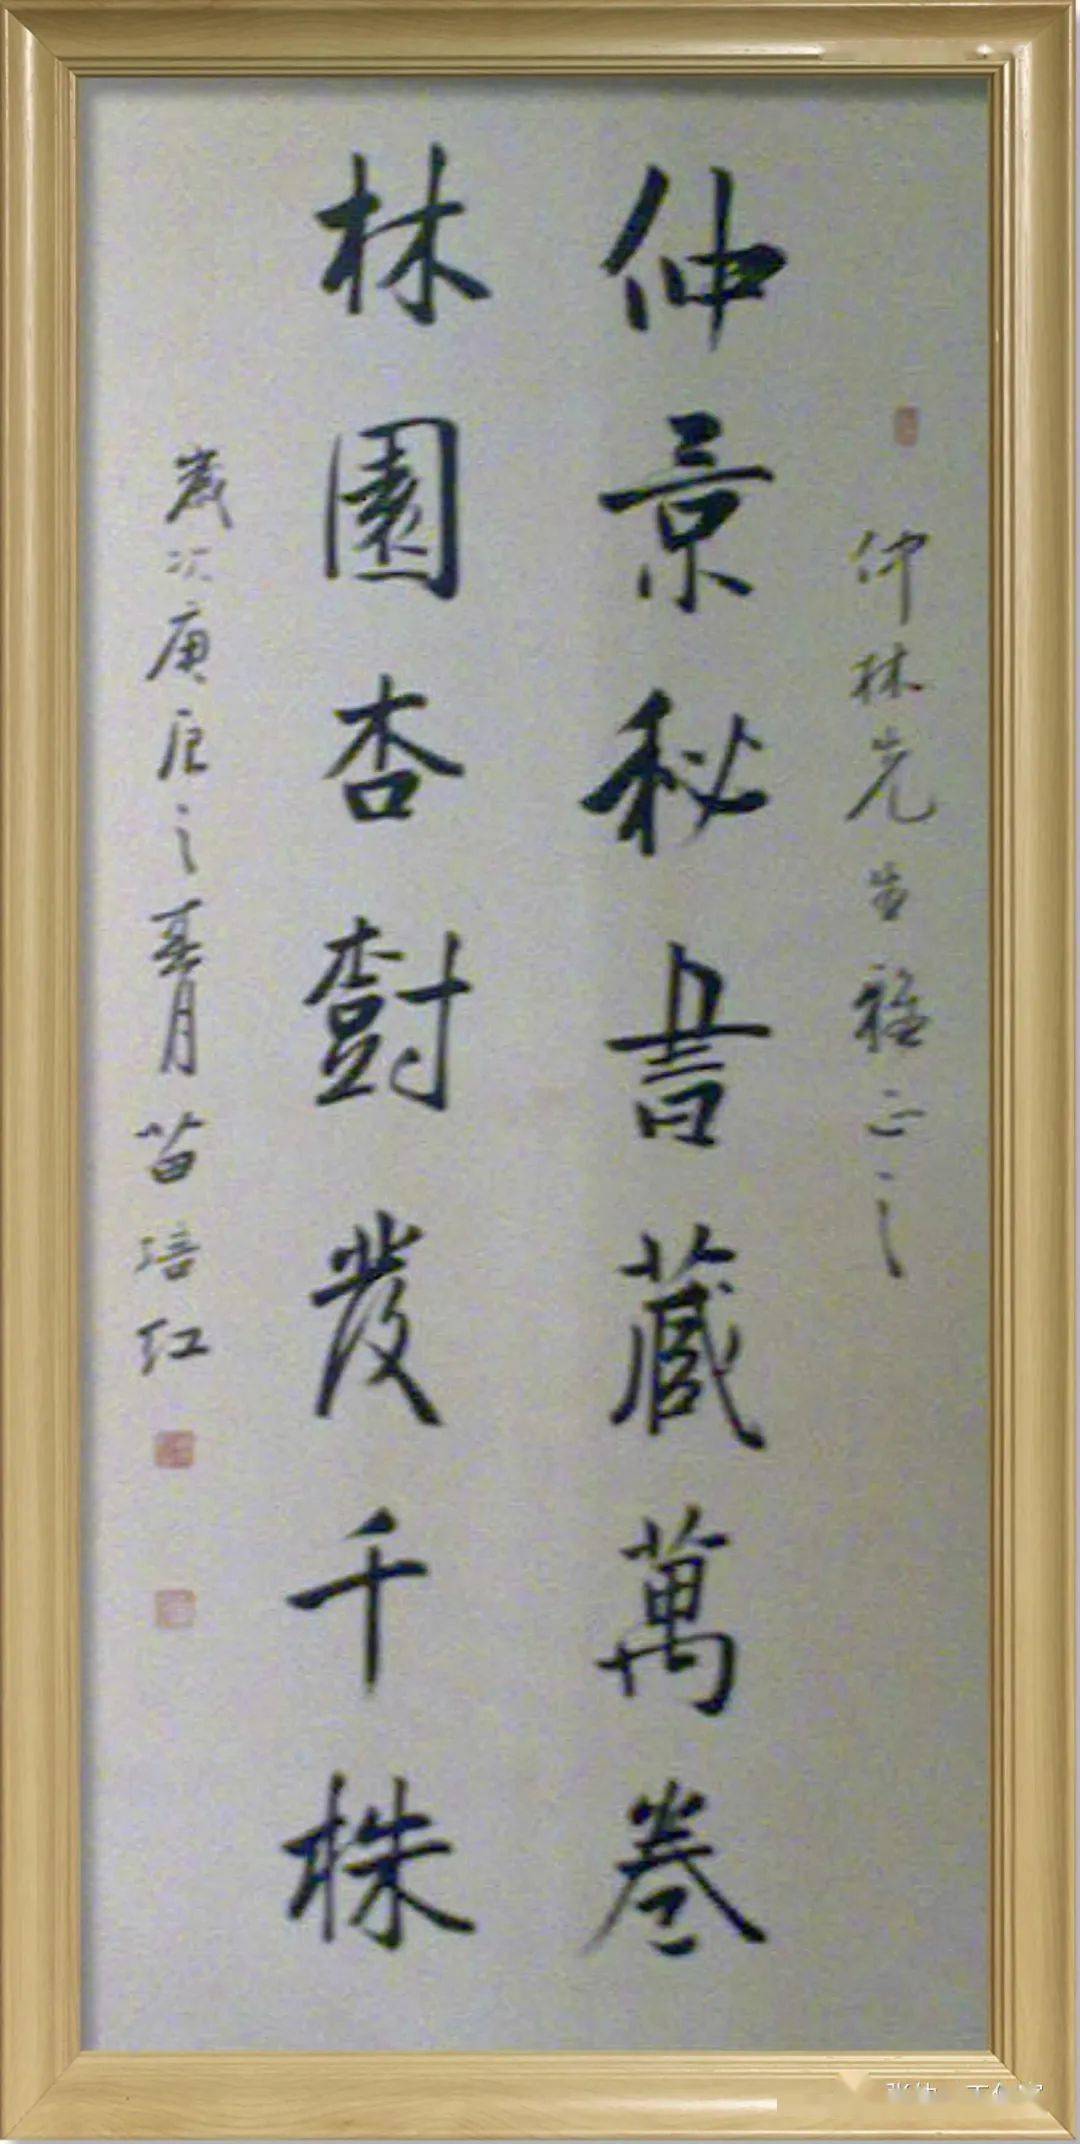 仲林先生雅正之
仲景秘書藏萬卷
林園杏樹發千株
歲次庚辰之春月苗培红